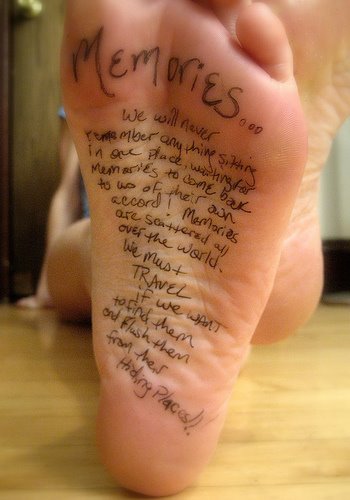 Memories...
We will never
remember anything sitting
in one place, waiting for
memories to come back
to us of their own
accord! Memories
are scattered all
over the world.
We must
TRAVEL
if we want
to find them
and flush them
from their
Hiding Places!!